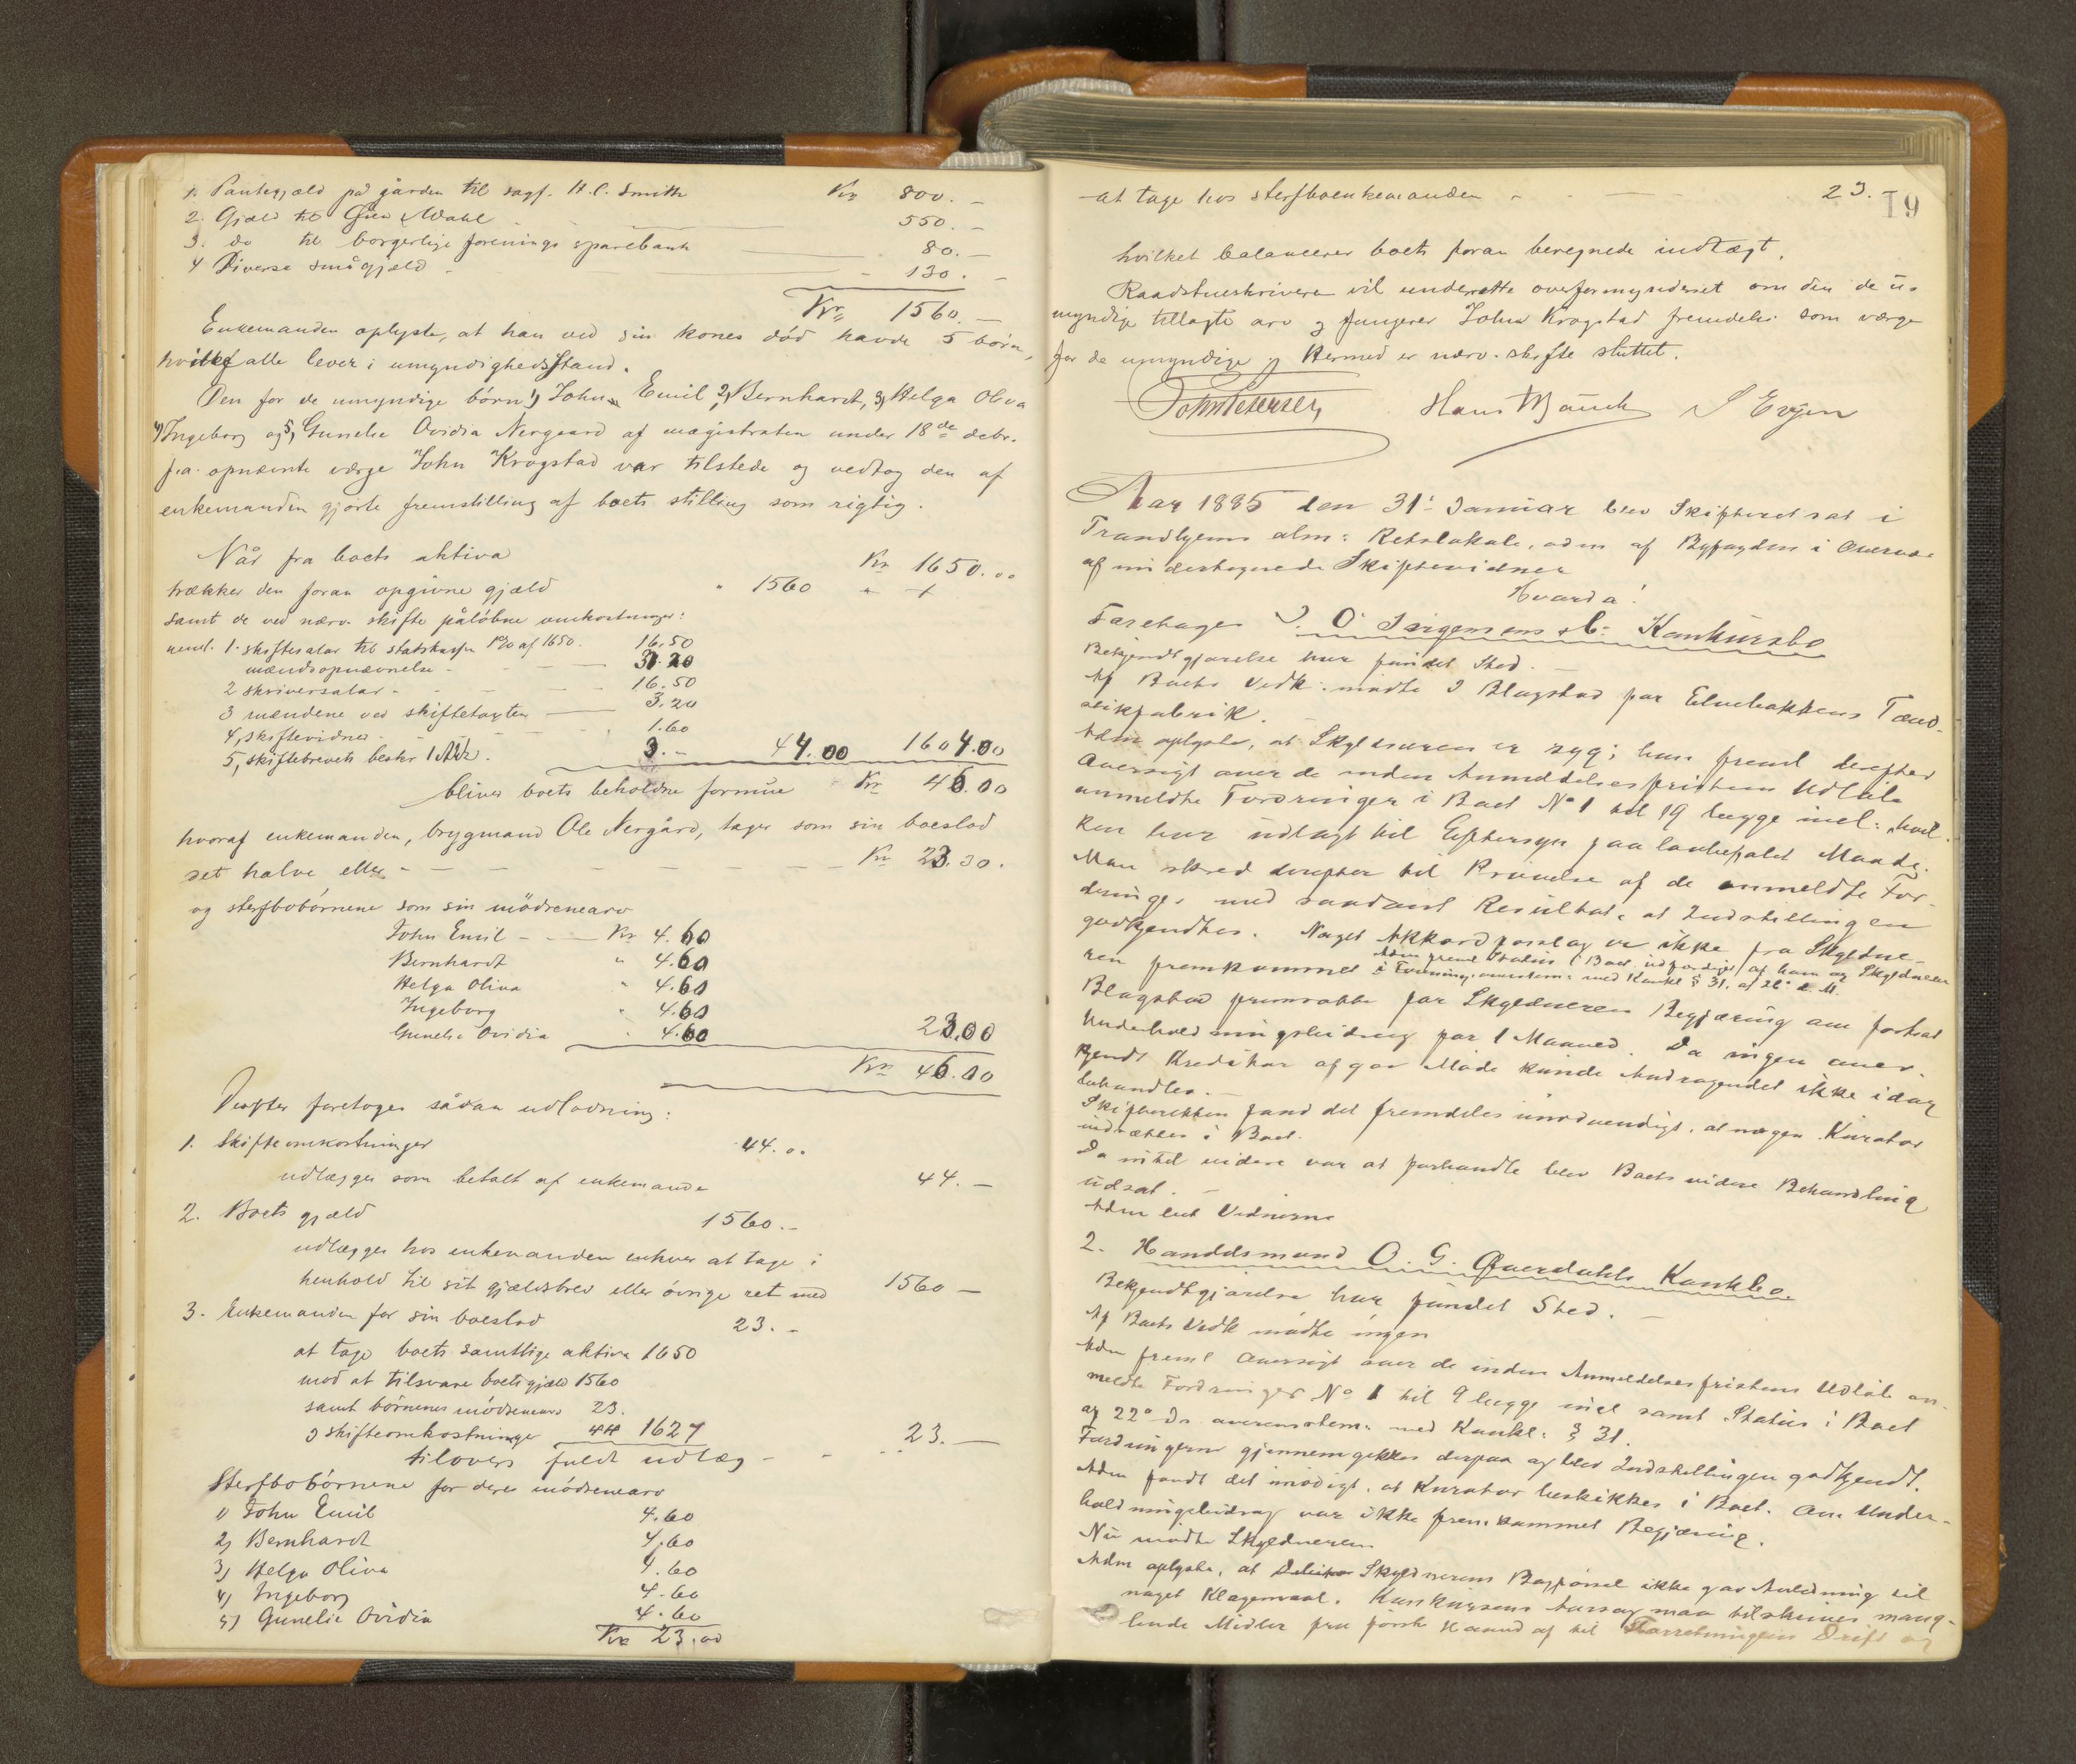 1. Pantegjæld på gården til sagf. H.C. Smith Kr 800. –
2. Gjæld til Wahl 550. –
3. do til borgerlige forenings sparebank 80. –
4 Diverse smågjæld – 130. –
Kr 1560. –
Enkemanden oplyste, at han ved sin kones død havde 5 børn,
hvilke alle lever i umyndighedsstand.
Den for de umyndige børn 1) John Emil 2) Bernhardt, 3) Helga Oliva
4) Ingeborg og 5) Gunelie Ovidia Nergaard af magistraten under 18de debr.
f.a. opnævnte værge John Krogstad var tilstede og vedtog den af
enkemanden gjorte fremstilling af boets stilling som rigtig.
Når fra boets aktiva Kr 1650.00
trækker den foran opgivne gjæld " 1560
samt de ved nærv. skifte påløbne omkostninger:
neml. 1. skiftesalar til statskassen 1% af 1650. 16.50
mændsopnævnelse – 3.20
2 skriversalar – 16.50
3 mændene ved skiftetagten 3.20
4, skiftevidner – 1.60
5, skiftebrevets beskr 3. – 44.00 1604.00
bliver boets beholdne formue Kr 46.00
hvoraf enkemanden, brygmand Ole Nergård, tager som sin boeslod
det halve eller – Kr 23.00.
og sterfbobörnene som sin mödrenearv
John Emil – Kr 4.60
Bernhardt " 4.60
Helga Oliva " 4.60
Ingeborg " 4.60
Gunelie Ovidia " 4.60 23.00
Kr 46.00
Derefter foretoges sådan udlodning:
1. Skifteomkostninger 44.00
udlægges som betalt af enkemanden 44. –
2. Boets gjæld 1560. –
udlægges hos enkemanden enhver at tage i
henhold til sit gjældsbrev eller øvrige ret med 1560 –
3. Enkemanden for sin boeslod 23. –
at tage boets samtlige aktiva 1650
mod at tilsvare boets gjæld 1560
samt børnenes mödrenearv 23.
og skifteomkostninger 44 1627
tilovers fuldt udlæg – 23. –
Sterfbobørnene for deres mödrenearv
1) John Emil 4.60
2) Bernhardt 4.60
3) Helga Oliva 4.60
4) Ingeborg 4.60
5) Gunelie Ovidia 4.60
Kr 23.00
at tage hos sterfboenkemanden – 23.
19
hvilket balancerer boets foran beregnede indtægt.
Raadstueskriveren vil underrette overformynderiet om den de u-
myndige tillagte arv og fungerer John Krogstad fremdeles som værge
for de umyndige og Hermed er nærv. skifte sluttet.
John Petersen Hans Mauck S Evjen
Aar 1885 den 31' Januar blev Skifteret sat i
Trondhjems alm: Retslokale, adm af Byfogden i Overvær
af undertegnede Skiftevidner
Hvorda:
Foretages O. Co: Konkursbo
Bekjendtgjørelse har fundet Sted. –
Af Boets Vedk: mødte I Blagstad for Elvebakkens Tænd-
stikfabrik.
Adm oplyste, at Skyldneren er syg; han freml derefter
Oversigt over de inden Anmeldelsesfristens Udløb
anmeldte Fordringer i Boet No 1 til 19 begge incl:, hvil-
ken har udlagt til Eftersyn paa lovbefalet Maade.
Man skred derefter til Prøvelse af de anmeldte For-
dringer med saadant Resultat, at Indstillingen
godkjendtes. Noget Akkordforslag er ikke fra Skyldne-
ren fremkommet Adm freml Status i Boet udfærdiget af ham og Skyldneren
i Forening, overenst: med Konkl § 31, af 22' d. M.
Blagstad fremsatte for Skyldneren Begjæring om fortsat
Underholdningsbidrag for 1 Maaned. Da ingen aner-
kjendt Kreditor af gav Møde kunde Andragendet ikke idag
behandles. –
Skifteretten fandt det fremdeles unødvendigt, at nogen Kurator
indsættes i Boet.
Da intet videre var at forhandle blev Boets videre Behandling
udsat. –
Adm Vidnerne
2. Handelsmand O. G. Qverdahls Konkbo.
Bekjendtgjørelse har fundet Sted. –
Af Boets Vedk mødte ingen
Adm freml Oversigt over de inden Anmeldelsesfristens Udløb an-
meldte Fordringer No 1 til 9 begge incl samt Status i Boet
af 22' Ds overensstem: med Konkl: § 31.
Fordringerne gjennemgikkes derpaa og blev Indstillingen godkjendt.
Adm fandt det unødigt, at Kurator beskikkes i Boet. Om Under-
holdningsbidrag var ikke fremkommet Begjæring.
Nu mødte Skyldneren
Adm oplyste, at Skyldnerens Bogførsel ikke gav Anledning til
noget Klagemaal. Konkursens Aarsag maa tilskrives mang-
lende Midler fra første Haand af til Forretningens Drift og